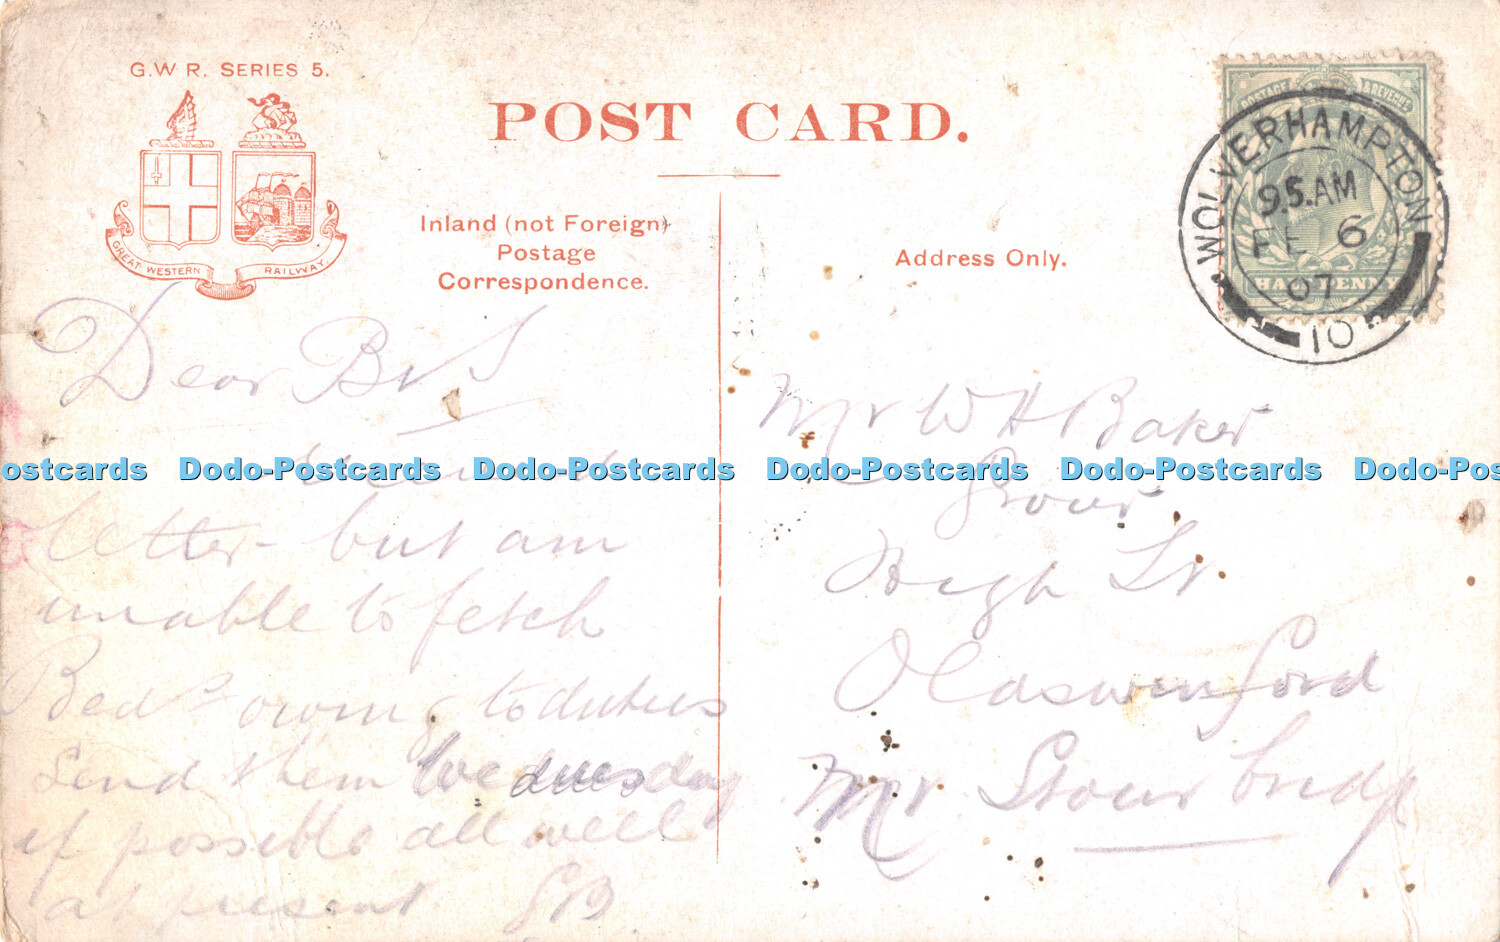 G.W R. SERIES 5.
GREAT WESTERN RAILWAY.
POST CARD.
Inland (not Foreign)
Postage
Correspondence.
Address Only.
POSTAGE & REVENUE
HALF PENNY
WOLVERHAMPTON
9.5.AM
FE 6
07
10
Dear Br
letter - but am
unable to fetch
Bed owing to duties
send them Wednesday
if possible all well
at present GB
Mr W H Baker
Grocer
High St
Oldswinford
Nr Stourbridge
ostcards Dodo-Postcards Dodo-Postcards Dodo-Postcards Dodo-Postcards Dodo-Pos